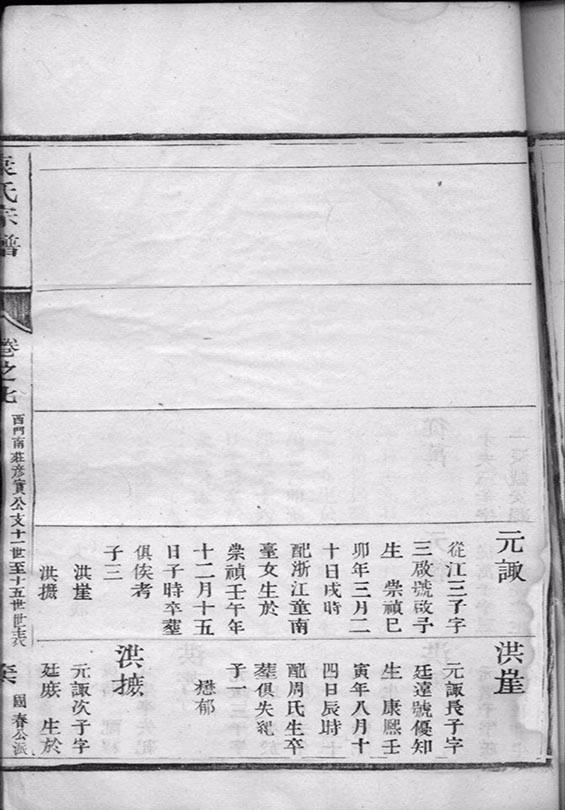 元諏
從江三子字
三啟號啟予
生 崇禎巳
卯年三月二
十日戌時
配浙江童南
臺女生於
崇禎壬午年
十二月十五
日子時卒塟
俱俟考
子三
洪崖
洪摭
洪崖
元諏長子字
廷遠號優知
生 康熙壬
寅年八月十
四日辰時
配周氏生卒
塟俱失紀
子一
懋郁
洪摭
元諏次子字
廷庶 生於
氏宗譜
卷之七
西門南莊彥實公支十一世至十五世世表
國春公派